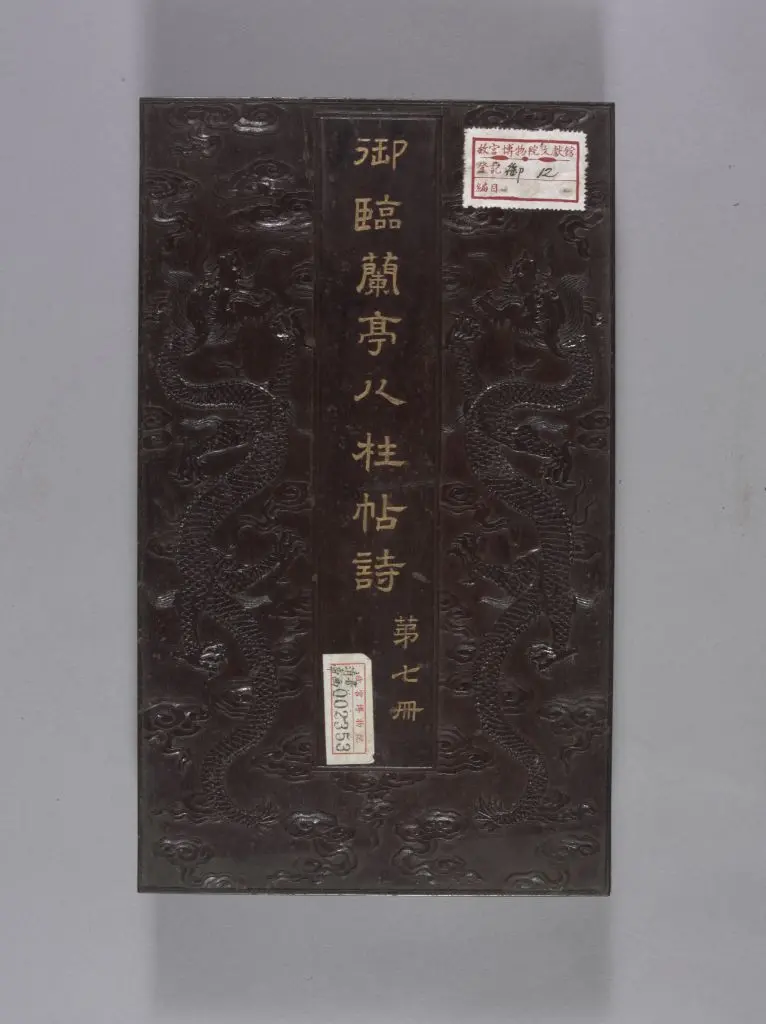 御臨蘭亭八柱帖詩
第七冊
故宮博物院文獻館
登記 御 12
編目
故宮博物院
002353